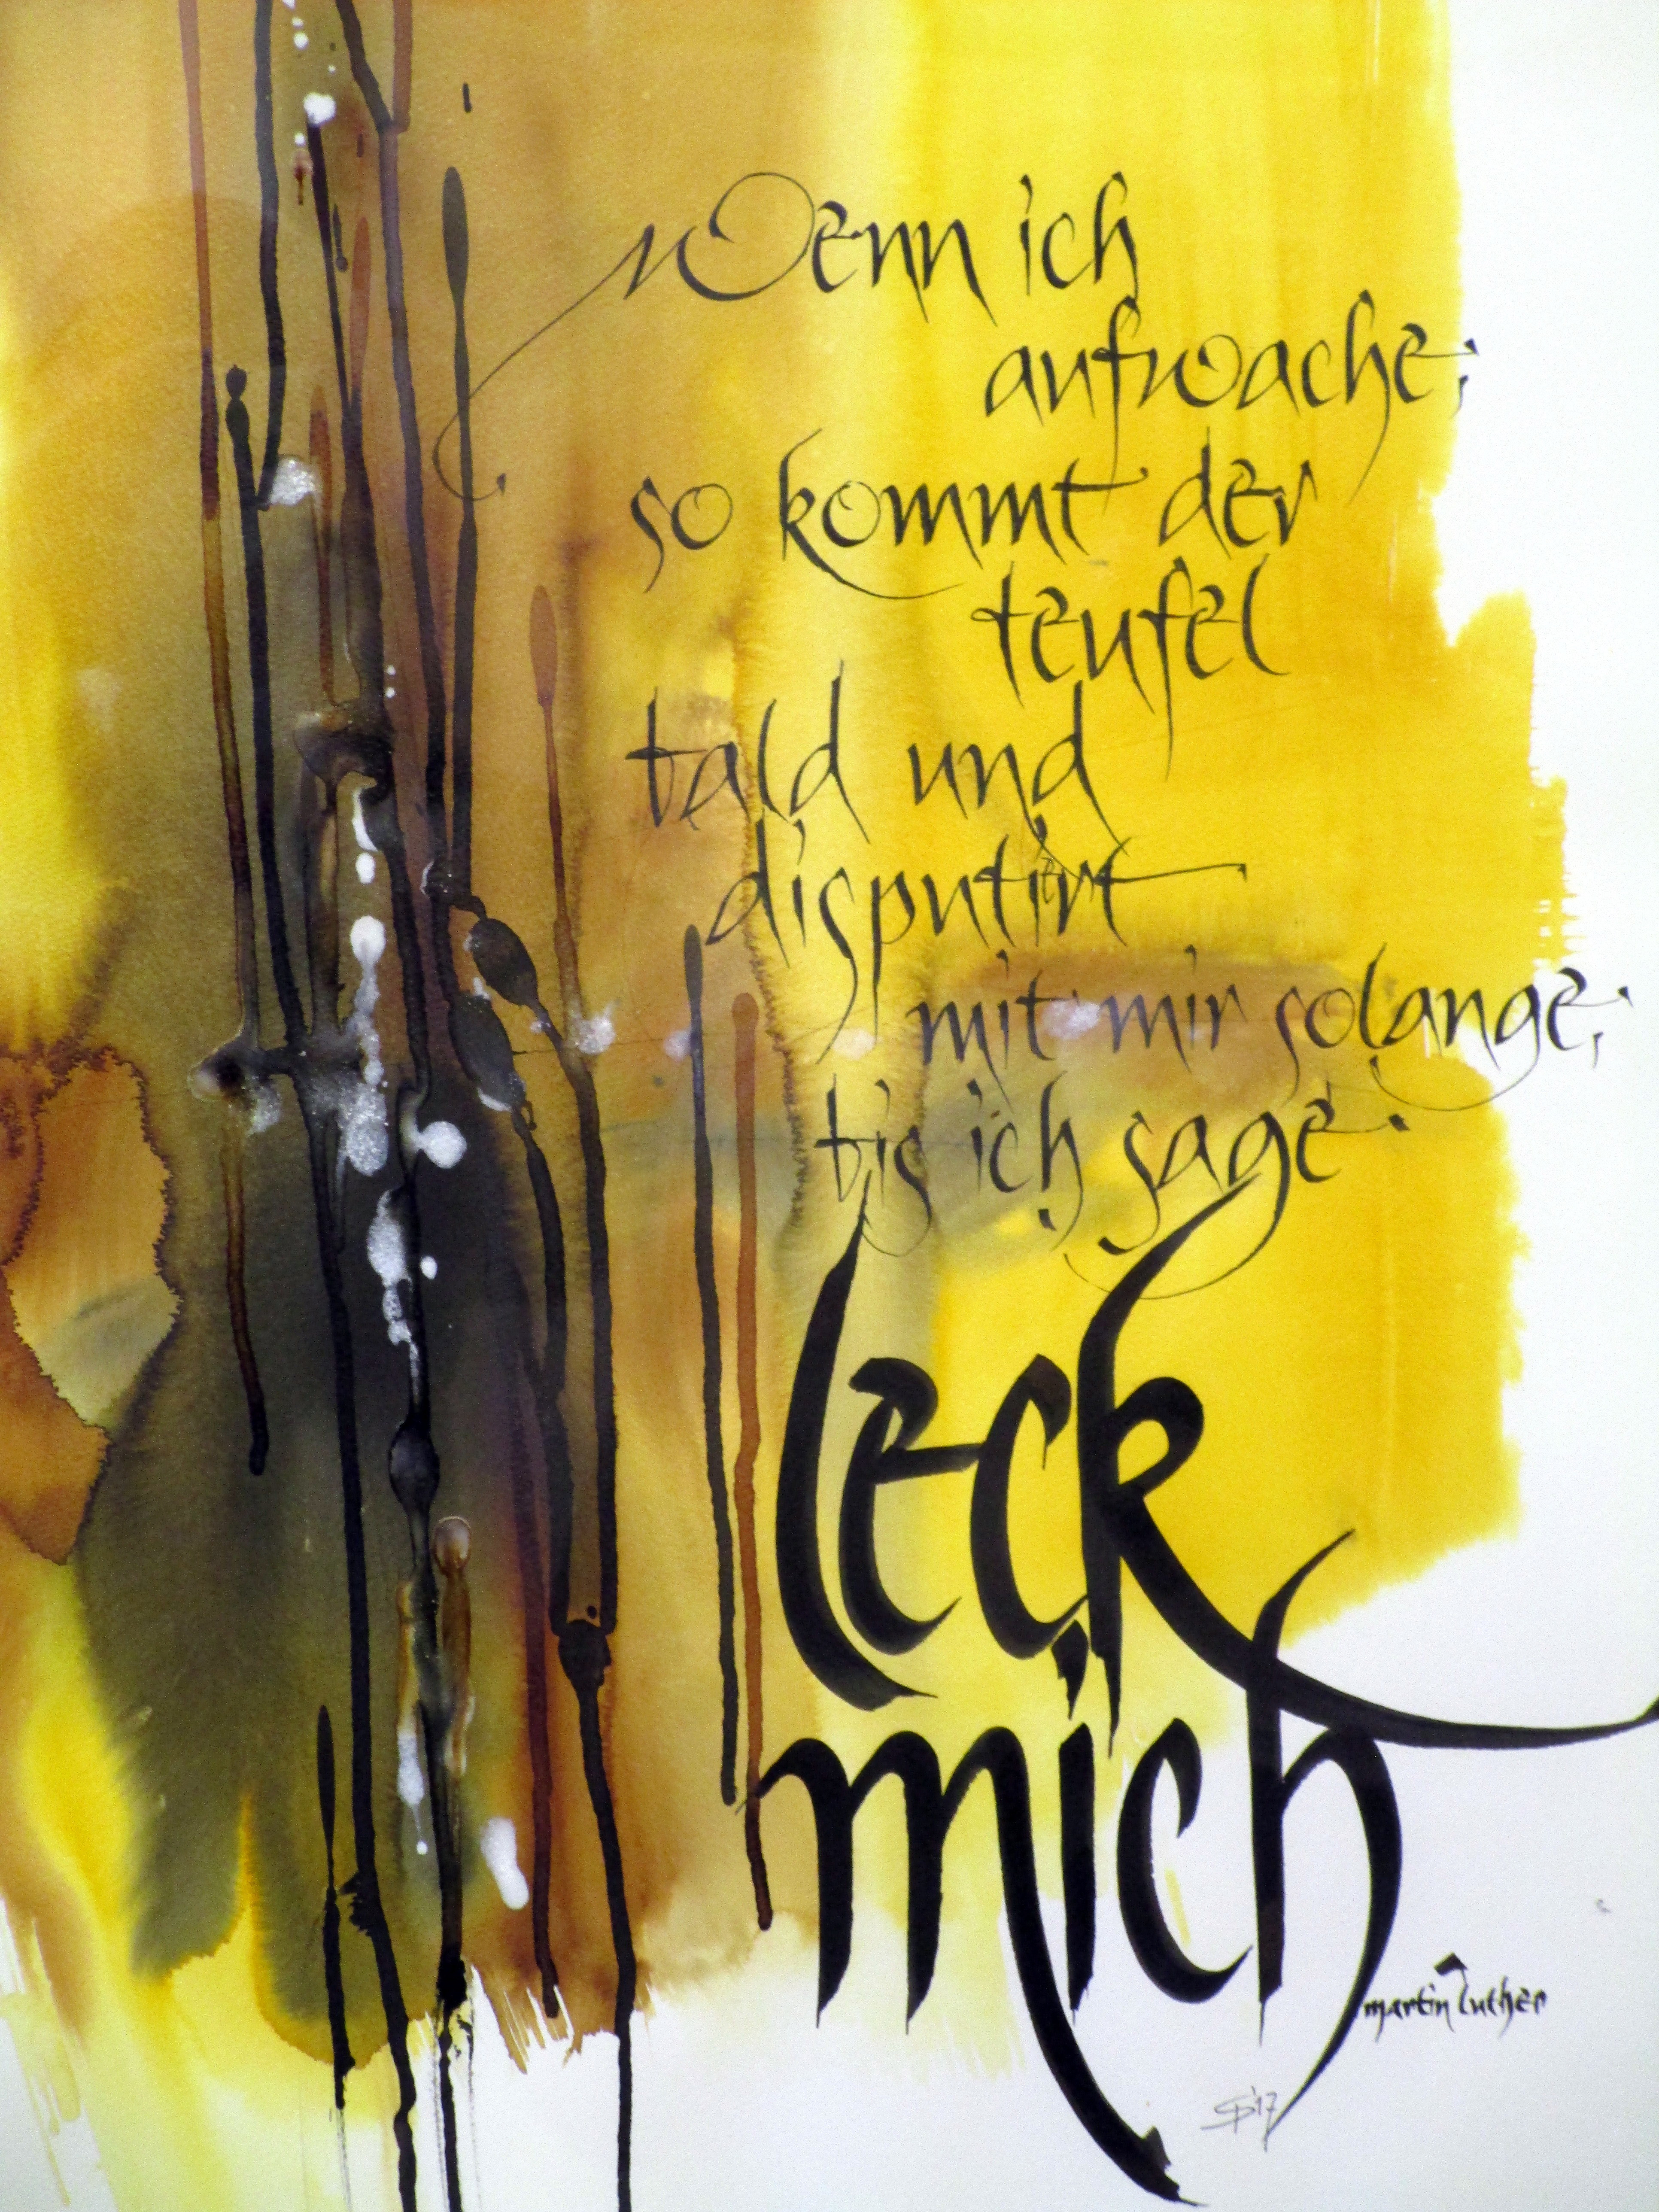 Wenn ich
aufwache,
so kommt der
teufel
bald und
disputirt
mit mir solange,
bis ich sage
leck
mich
martin luther
SP'17